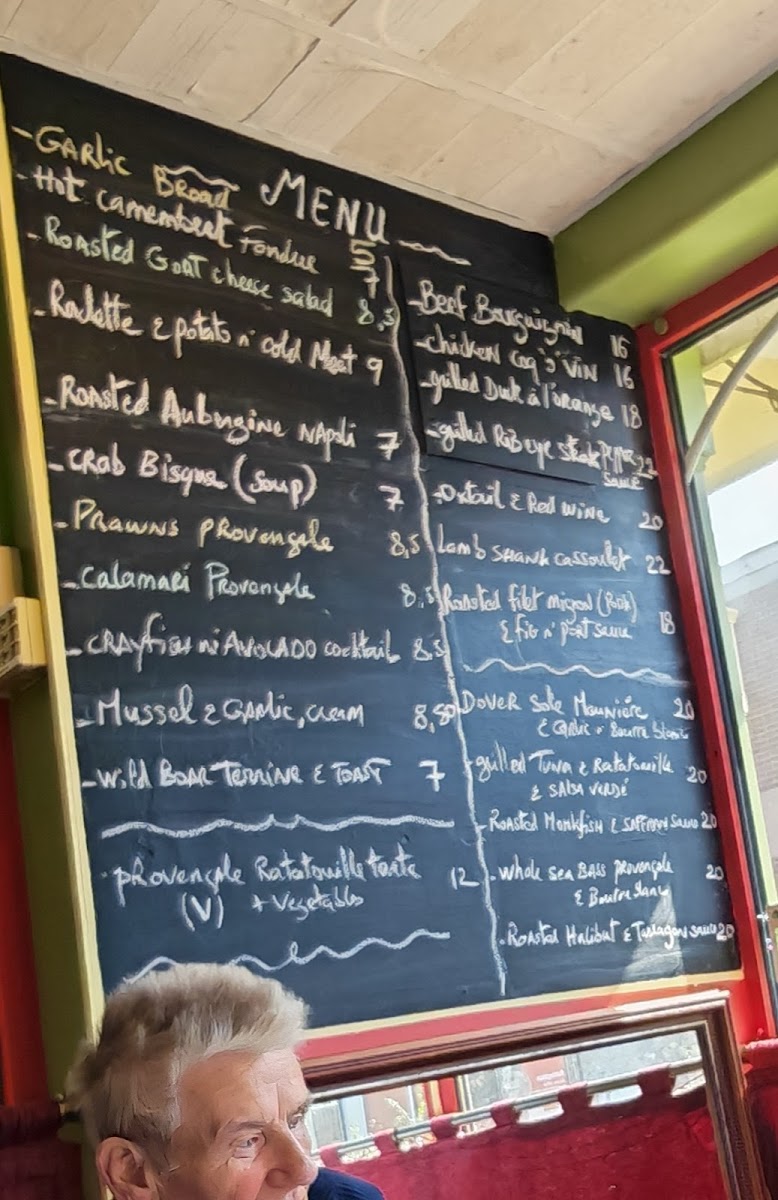 MENU
- GARLIC BREAD 5
- Hot camembert Fondue 7
- ROASTED GOAT cheese salad 8,5
- Raclette & potato n' cold Meat 9
- ROASTED Aubergine NAPoli 7
- CRAB Bisque (Soup) 7
- PRAWNS PROVENÇALE 8,5
- CALAMARI PROVENÇALE 8,5
- CRAYFISH n' AVOCADO cocktail 8,5
- Mussel & GARLIC, CREAM 8,50
- Wild BOAR TERRINE & TOAST 7
- PROVENÇALE Ratatouille tarte 12
(V) + Vegetables
- Beef Bourguignon 16
- chicken Coq "o" VIN 16
- grilled Duck à l'orange 18
- grilled Rib eye steak Pepper 22
sauce
- Oxtail & Red wine 20
Lamb SHANK cassoulet 22
Roasted filet mignon (Pork) 18
& fig n' port sauce
DOVER Sole Meunière 20
& Garlic n' Beurre blanc
- grilled TUNA & Ratatouille 20
& SALSA VERDÉ
- Roasted Monkfish & SAFFRON sauce 20
- Whole Sea BASS provençale 20
& Beurre blanc
- Roasted Halibut & Tarragon sauce 20